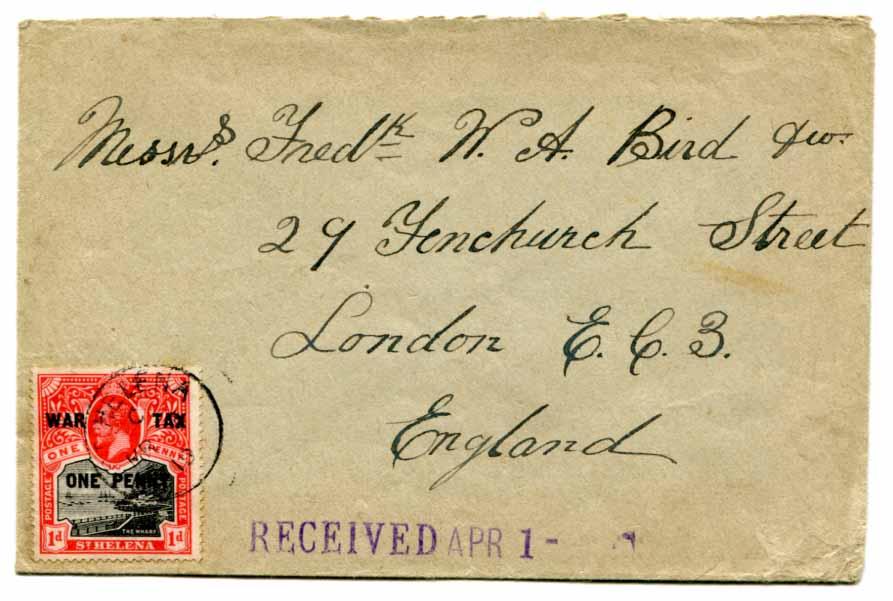 Messrs. Fredk W. A. Bird & Co.
29 Fenchurch Street
London E. C. 3.
England
WAR TAX
ONE PENNY
ONE PENNY
POSTAGE POSTAGE
THE WHARF
1d ST HELENA 1d
HELENA
RECEIVED APR 1 -